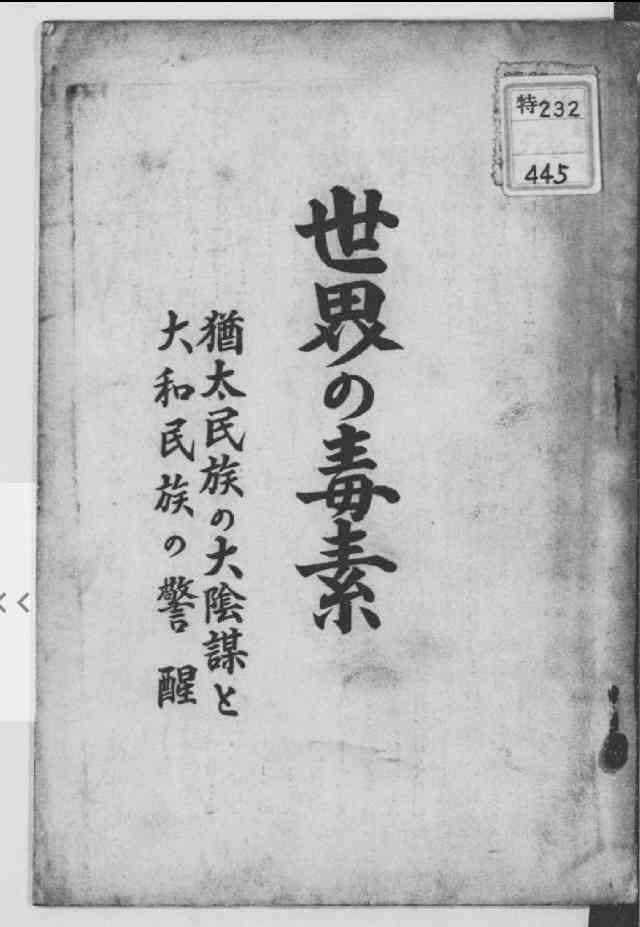 特232
445
世界の毒素
猶太民族の大陰謀と
大和民族の警醒